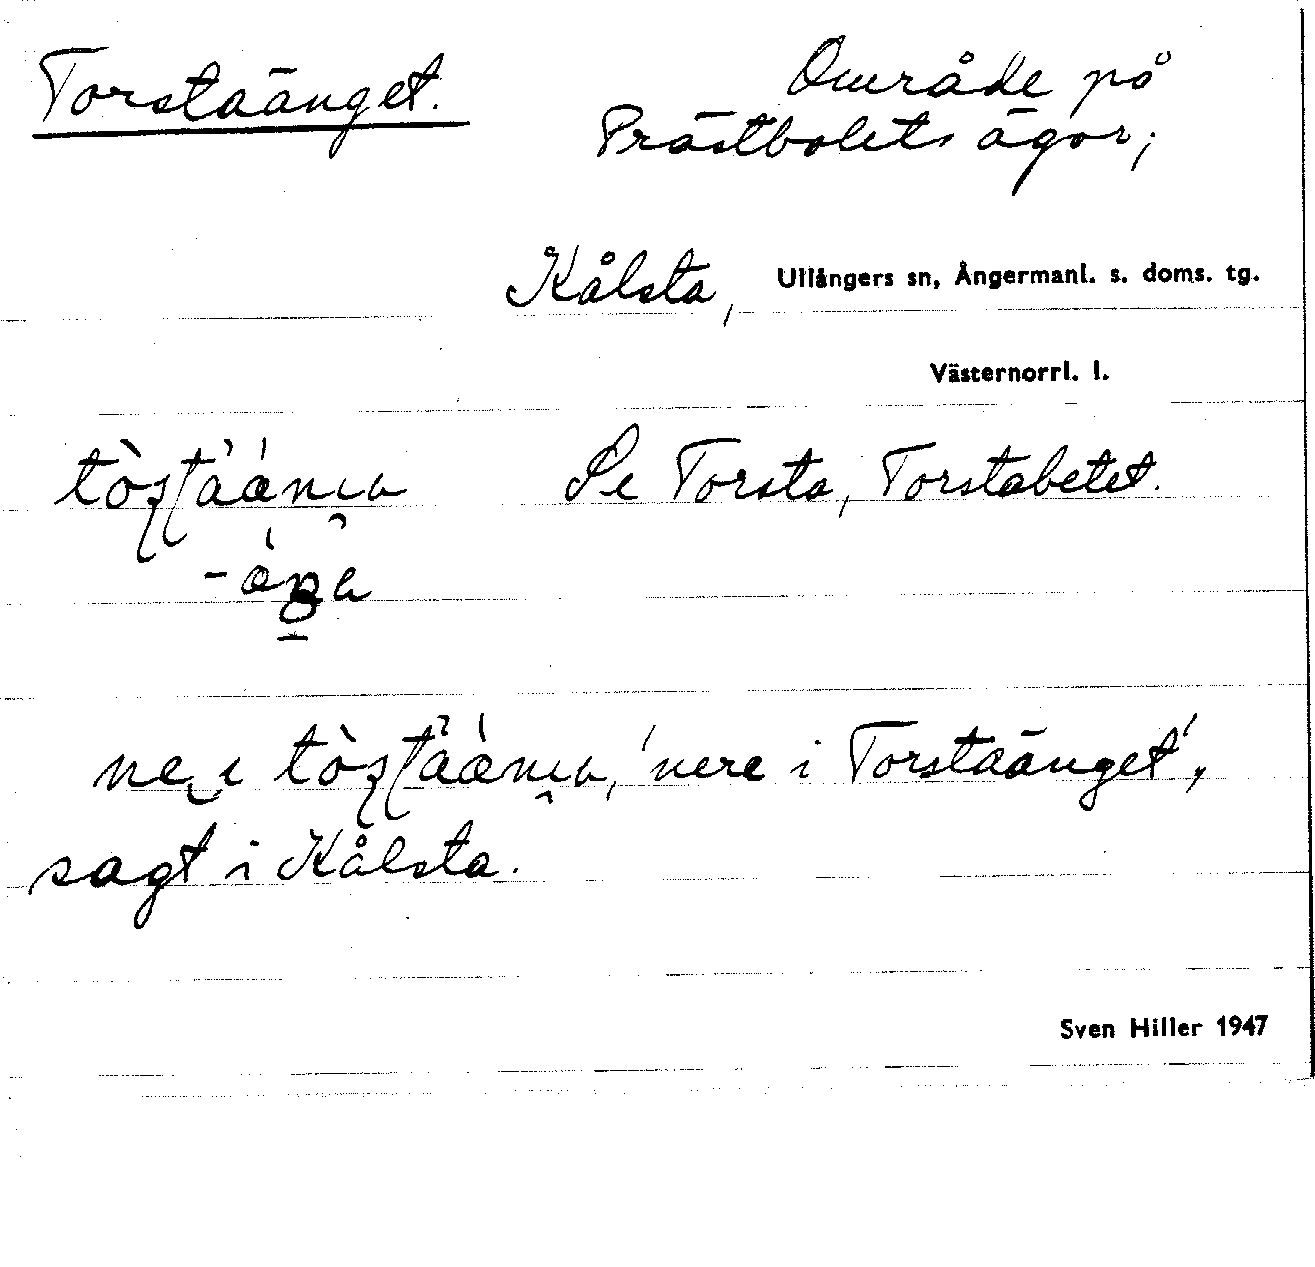 Torstaänget. Område på
Prästbolets ägor;
Kålsta, Ullångers sn, Ångermanl. s. doms. tg.
Västernorrl. l.
Se Torsta, Torstabetet.
'nere i Torstaänget',
sagt i Kålsta.
Sven Hiller 1947